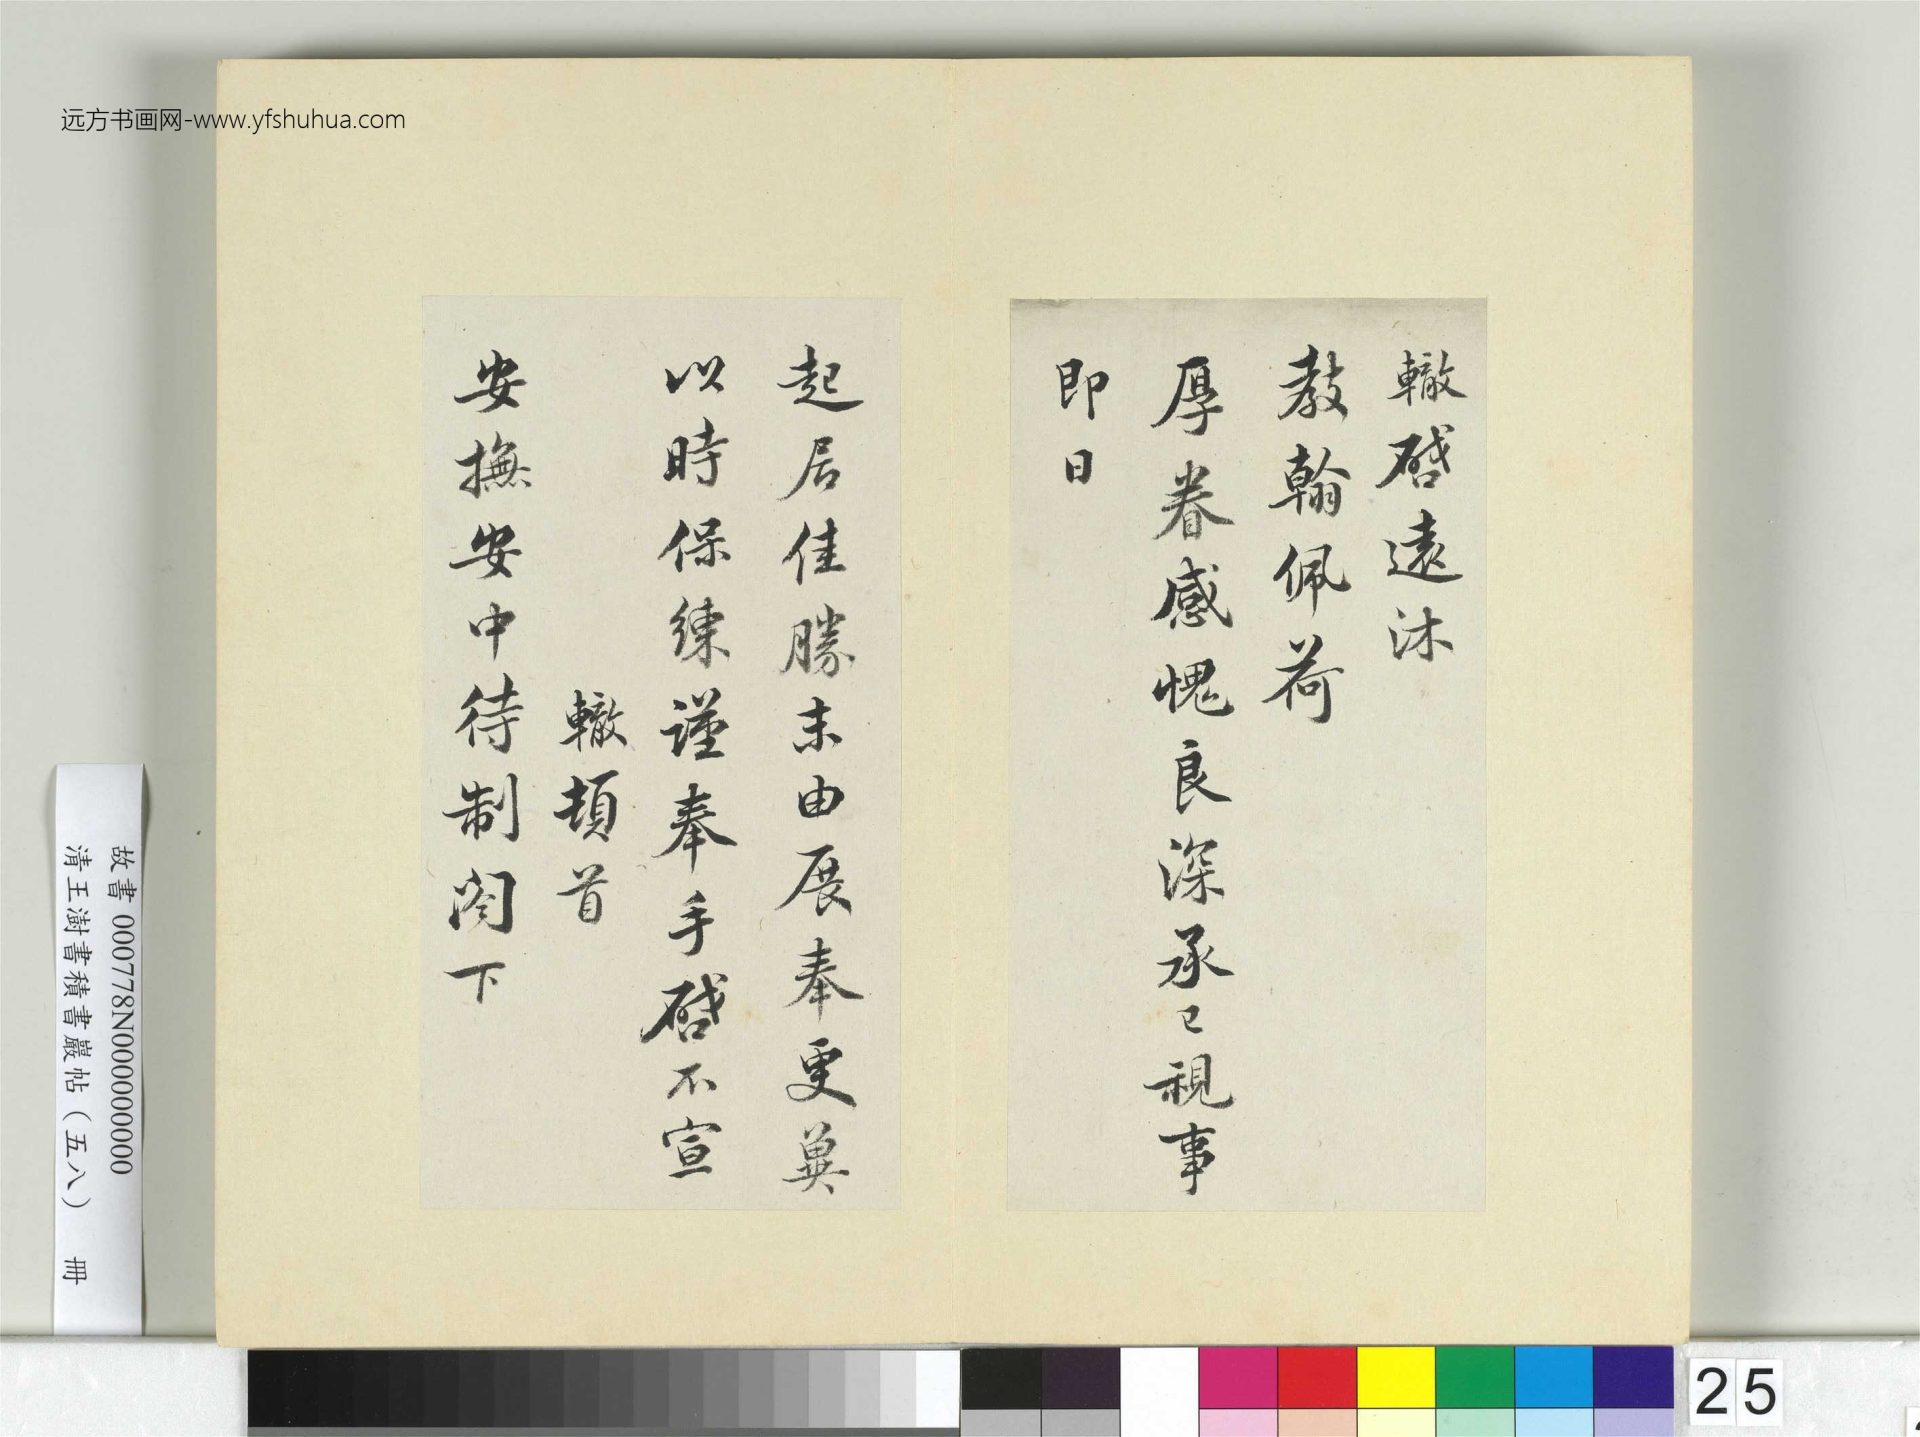 远方书画网-www.yfshuhua.com
轍啓遠沐
教翰佩荷
厚眷感愧良深承已視事
即日
起居佳勝未由展奉更冀
以時保練謹奉手啓不宣
轍頓首
安撫安中待制閣下
故書 000778N000000000
清王澍書積書巖帖（五八） 冊
25